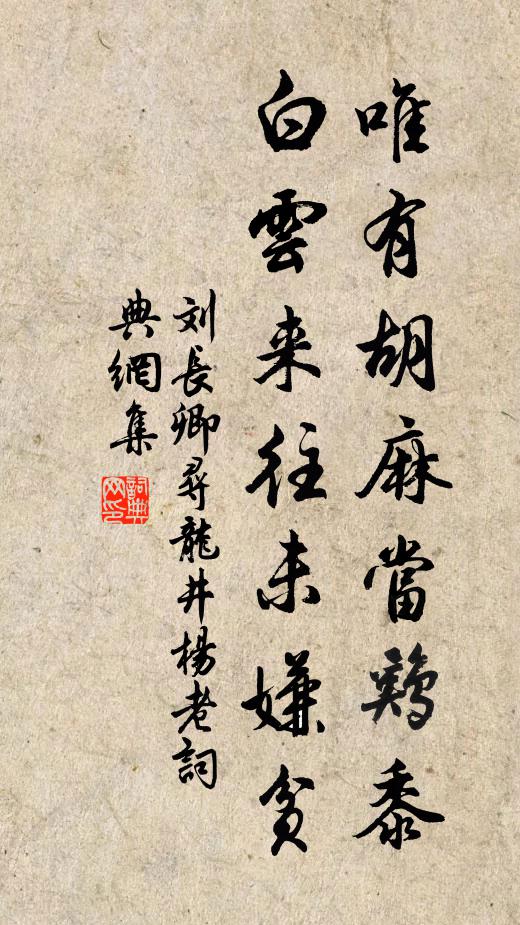 唯有胡麻當鷄黍
白雲来往未嫌貧
刘長卿尋龍井楊老詞
典網集
詞典网印